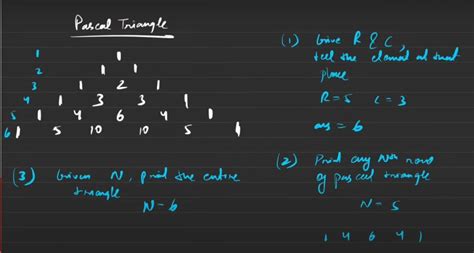 Pascal Triangle
1 1
2 1 1
3 1 2 1
4 1 3 3 1
5 1 4 6 4 1
6 1 5 10 10 5 1
(3) Given N, print the entire
triangle
N = 6
(1) Give R & C,
tell the element at that
place
R = 5 C = 3
ans = 6
(2) Print any Nth row
of pascal triangle
N = 5
1 4 6 4 1